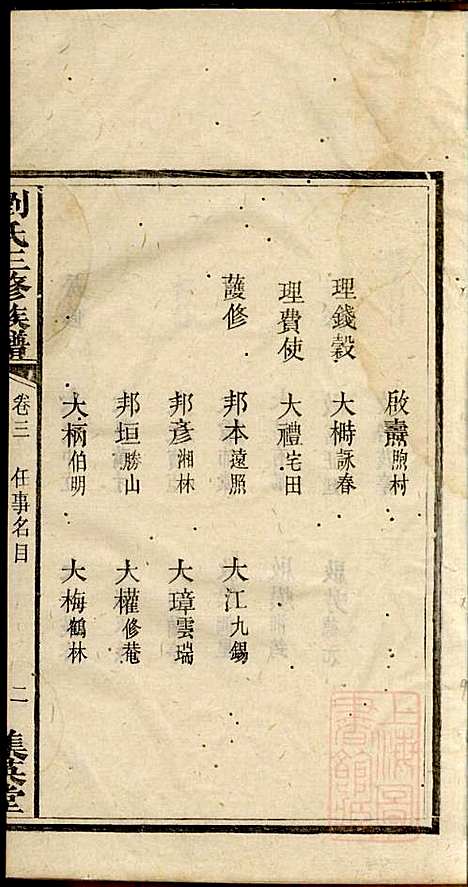 啟壽煦村
理錢穀　大榯詠春
理費使　大禮宅田
護修　邦本遠照　大江九錫
邦彥湘林　大璋雲瑞
邦垣勝山　大權修菴
大柄伯明　大梅鶴林
劉氏三修族譜　卷三　任事名目　二　集英堂
上海圖書館藏